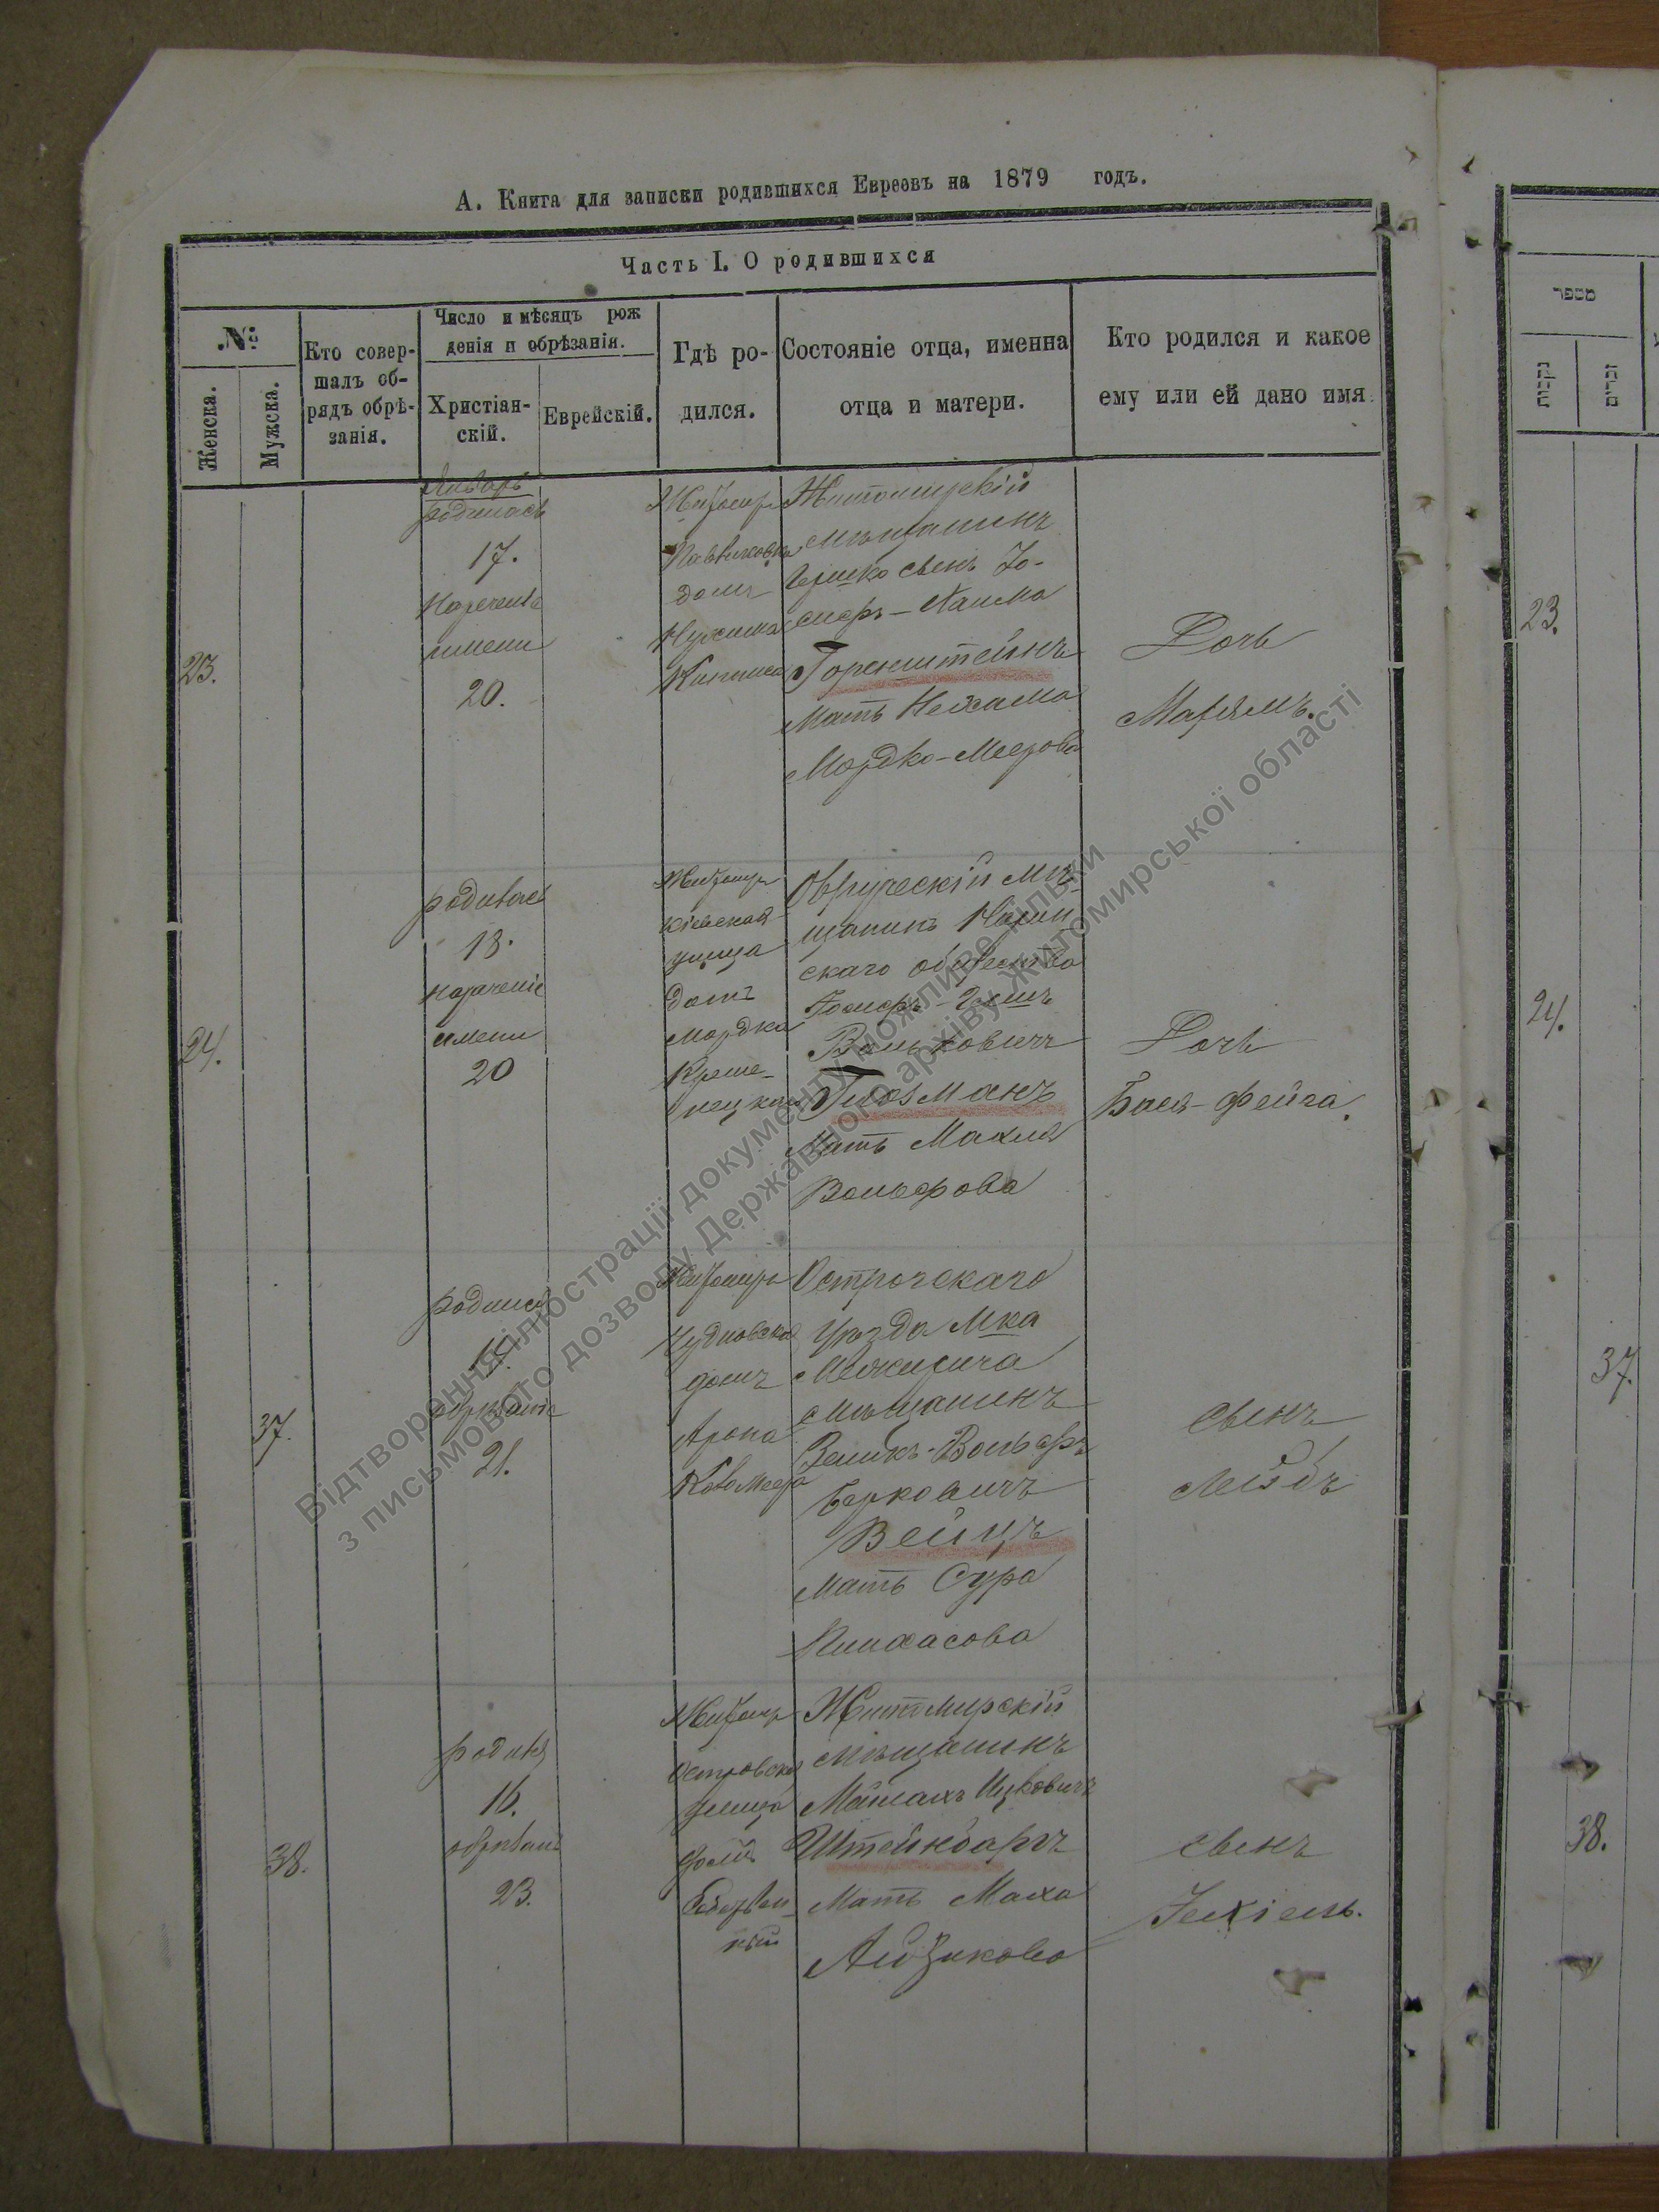 А. Книга для записки родившихся Евреевъ на 1879 годъ.
Часть I. О родившихся
№:
Женска.
Мужска.
Кто совер-
шалъ об-
рядъ обрѣ-
занія.
Число и мѣсяцъ рож
денія и обрѣзанія.
Христіан-
скій.
Еврейскій.
Гдѣ ро-
дился.
Состояніе отца, именна
отца и матери.
Кто родился и какое
ему или ей дано имя.
23.
Январь
родилась
17.
Нареченіе
имени
20.
Житомир
домъ
Житомирскій
мѣщанинъ
Гершко сынъ Іо-
Горенштейнъ
Мать Нехама
Мордко-Меерова
Дочь
Марьямъ.
24.
родилась
18.
нареченіе
имени
20
Житомир
Кіевская
улица
домъ
Мордка
Креме-
нецкаго
Овручскій мѣ-
щанинъ
скаго общества
Вольковичъ
Глозманъ
Мать Махля
Вольфова
Дочь
Бася-Фейга.
37.
родился
обрѣзаніе
21.
Житомиръ
Чудновская
домъ
Арона
Острогскаго
Уѣзда Мка
Межирича
мѣщанинъ
Зеликъ-Вольфъ
Берковичъ
Вейцъ
Мать Сура
Пинхасова
сынъ
Лейбъ
38.
родился
16.
обрѣзаніе
23.
Житомир
улица
домъ
Житомирскій
мѣщанинъ
Ицковичъ
Штейнбаргъ
Мать Маха
Айзикова
сынъ
Іехіель.
מספר
נקבות
זכרים
23.
24.
37.
38.
Відтворення ілюстрації документу можливе тільки
з письмового дозволу Державного архіву Житомирської області